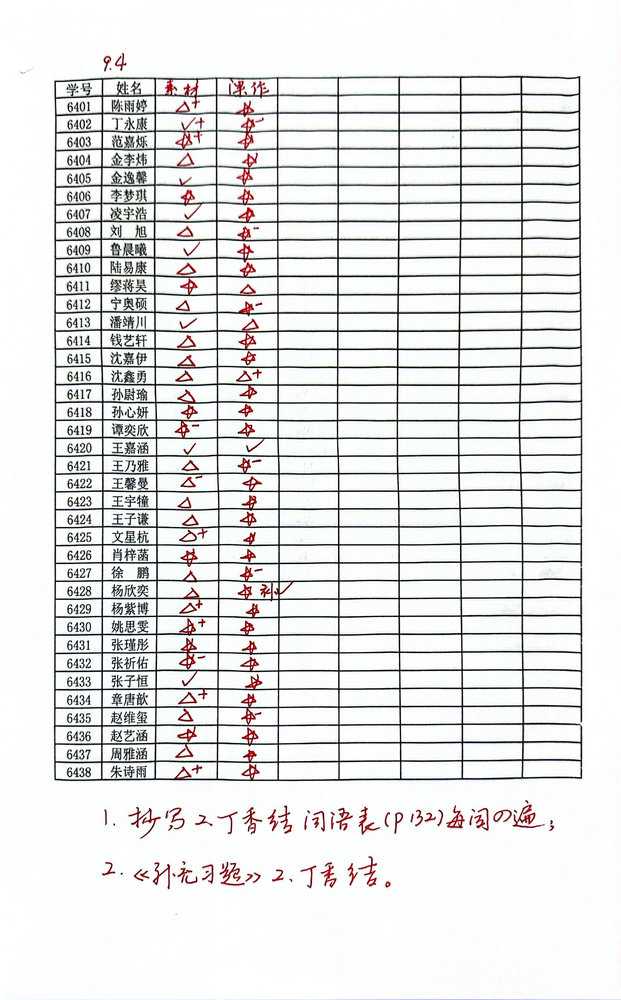 9.4
学号 姓名 素材 课作
6401 陈雨婷 △+ ☆
6402 丁永康 ✓+ ☆-
6403 范嘉烁 ☆+ ☆
6404 金李炜 △ ☆
6405 金逸馨 ✓ ☆
6406 李梦琪 ☆ ☆
6407 凌宇浩 ✓ ☆
6408 刘 旭 △ ☆-
6409 鲁晨曦 ✓ ☆
6410 陆易康 △ ☆
6411 缪蒋昊 ☆ △
6412 宁奥硕 △ ☆-
6413 潘靖川 ✓ △
6414 钱艺轩 △ ☆
6415 沈嘉伊 △ ☆
6416 沈鑫勇 △ △+
6417 孙尉瑜 △ ☆
6418 孙心妍 ☆ ☆
6419 谭奕欣 ☆- ☆
6420 王嘉涵 ✓ ✓
6421 王乃雅 △ ☆-
6422 王馨曼 △- ☆
6423 王宇犝 △ ☆
6424 王子谦 △ ☆
6425 文星杭 △+ ☆
6426 肖梓菡 ☆ ☆
6427 徐 鹏 △ ☆-
6428 杨欣奕 △ ☆ 补✓
6429 杨紫博 △+ ☆
6430 姚思雯 ☆+ ☆
6431 张瑾彤 ☆ ☆
6432 张祈佑 ☆- ☆
6433 张子恒 ✓ ☆
6434 章唐歆 △+ ☆
6435 赵维玺 △ ☆-
6436 赵艺涵 ☆ ☆
6437 周雅涵 △ ☆
6438 朱诗雨 △+ ☆
1. 抄写2.丁香结词语表(P132)每词4遍;
2.《补充习题》2.丁香结。